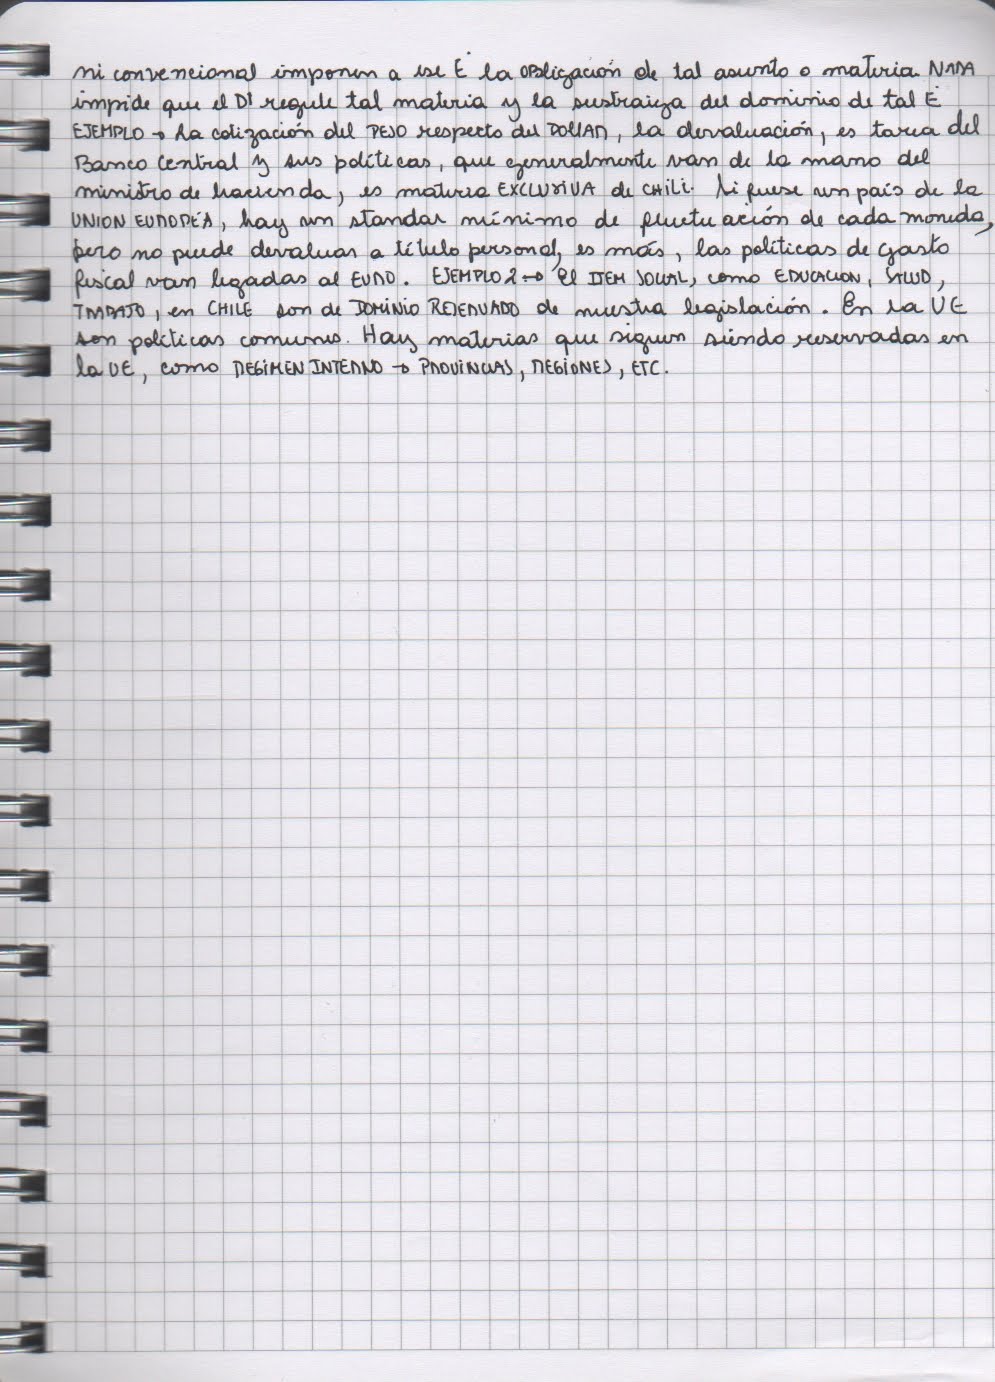 ni convencional imponen a ese E la obligación de tal asunto o materia. NADA
impide que el DI regule tal materia y la sustraiga del dominio de tal E
EJEMPLO → La cotización del PESO respecto del DOLLAR, la devaluación, es tarea del
Banco Central y sus políticas, que generalmente van de la mano del
ministro de hacienda, es materia EXCLUSIVA de CHILE. Si fuese un país de la
UNION EUROPÉA, hay un standar mínimo de fluctuación de cada moneda,
pero no puede devaluar a título personal, es más, las políticas de gasto
fiscal van ligadas al EURO. EJEMPLO 2 → El ITEM SOCIAL, como EDUCACION, SALUD,
TRABAJO, en CHILE son de DOMINIO RESERVADO de nuestra legislación. En la UE
son políticas comunes. Hay materias que siguen siendo reservadas en
la UE, como REGIMEN INTERNO → PROVINCIAS, REGIONES, ETC.